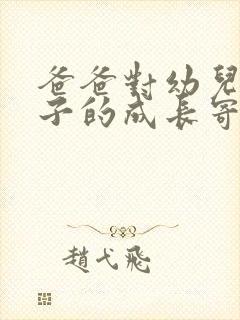 爸爸對幼兒
子的成長寄
趙弋飛